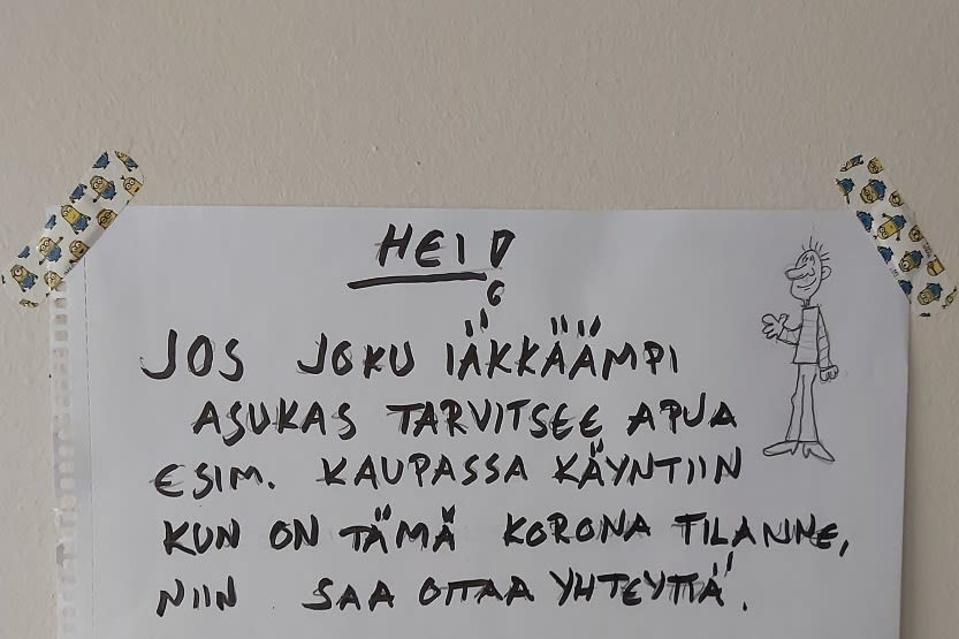 HEI!
JOS JOKU IÄKKÄÄMPI
ASUKAS TARVITSEE APUA
ESIM. KAUPASSA KÄYNTIIN
KUN ON TÄMÄ KORONA TILANNE,
NIIN SAA OTTAA YHTEYTTÄ.